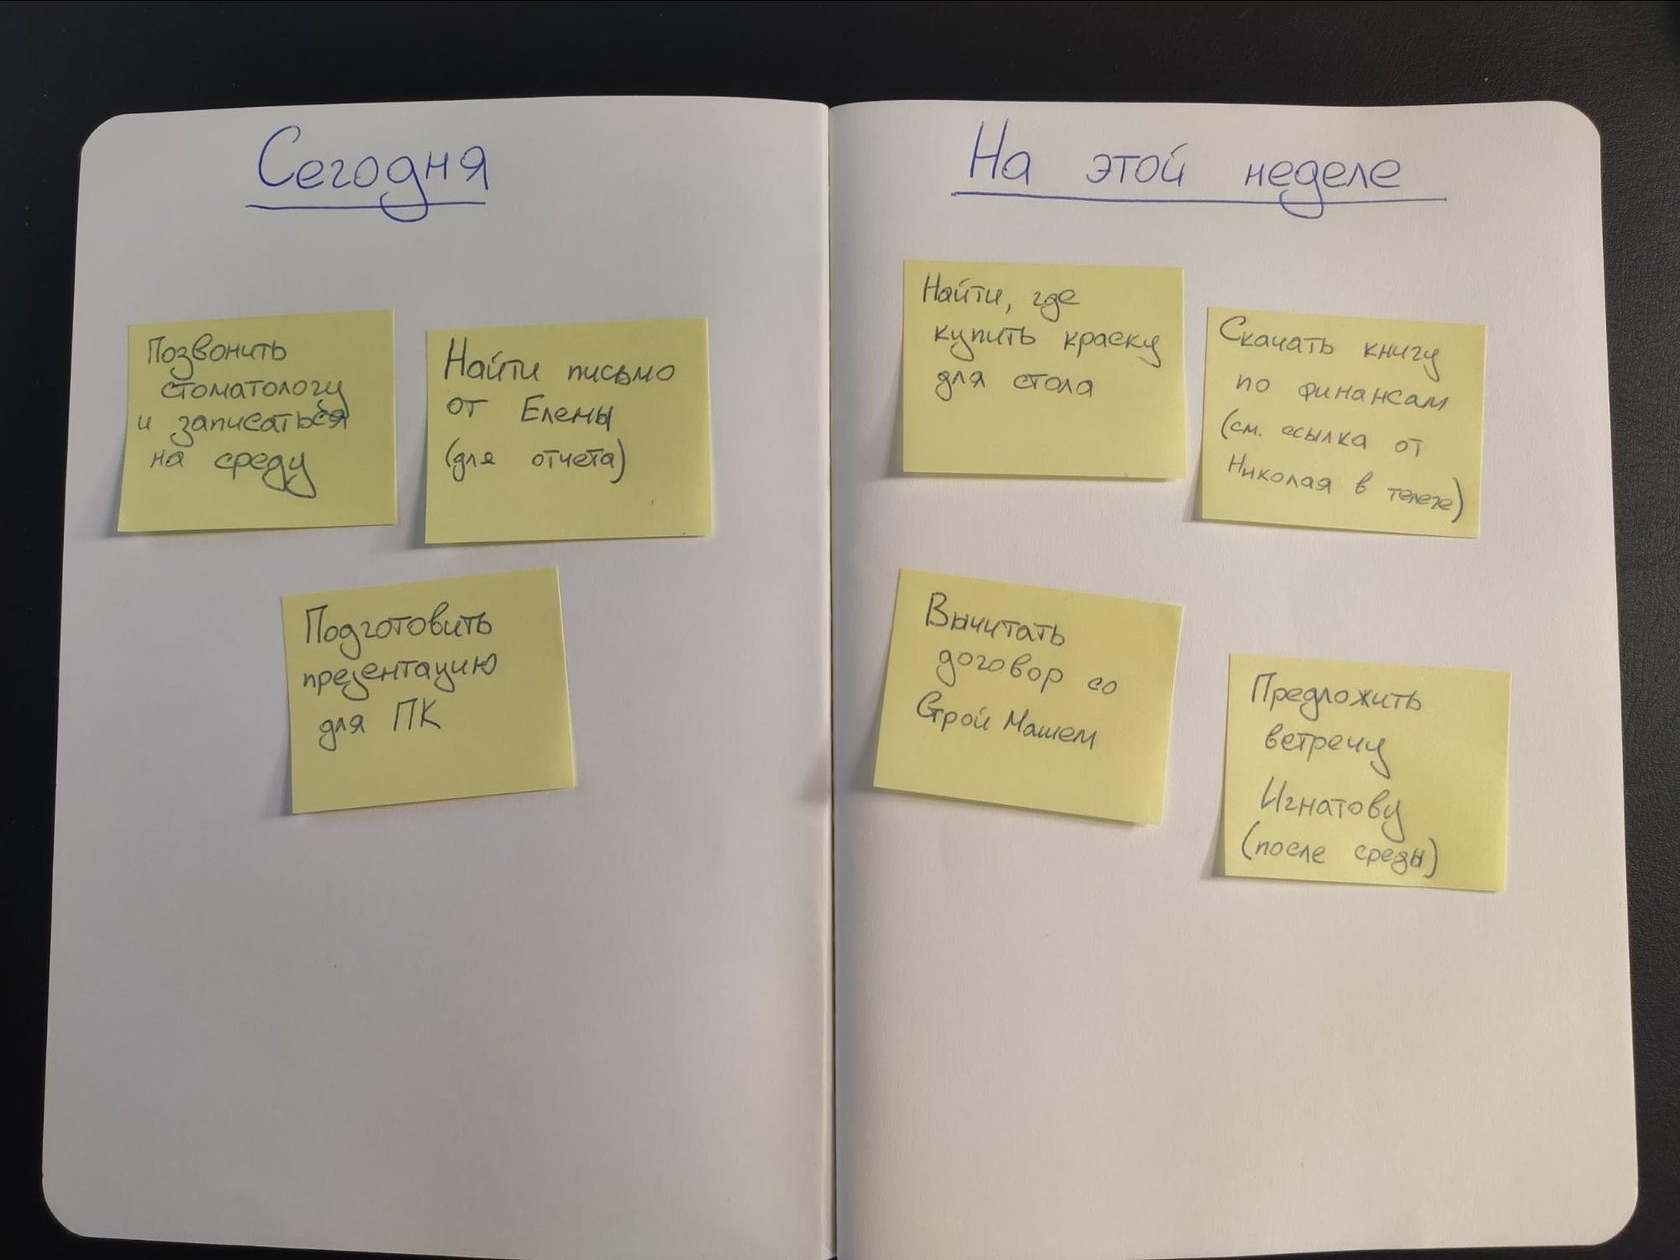 Сегодня
Позвонить
стоматологу
и записаться
на среду
Найти письмо
от Елены
(для отчета)
Подготовить
презентацию
для ПК
На этой неделе
Найти, где
купить краску
для стола
Скачать книгу
по финансам
(см. ссылка от
Николая в телеге)
Вычитать
договор со
Строй Машем
Предложить
встречу
Игнатову
(после среды)